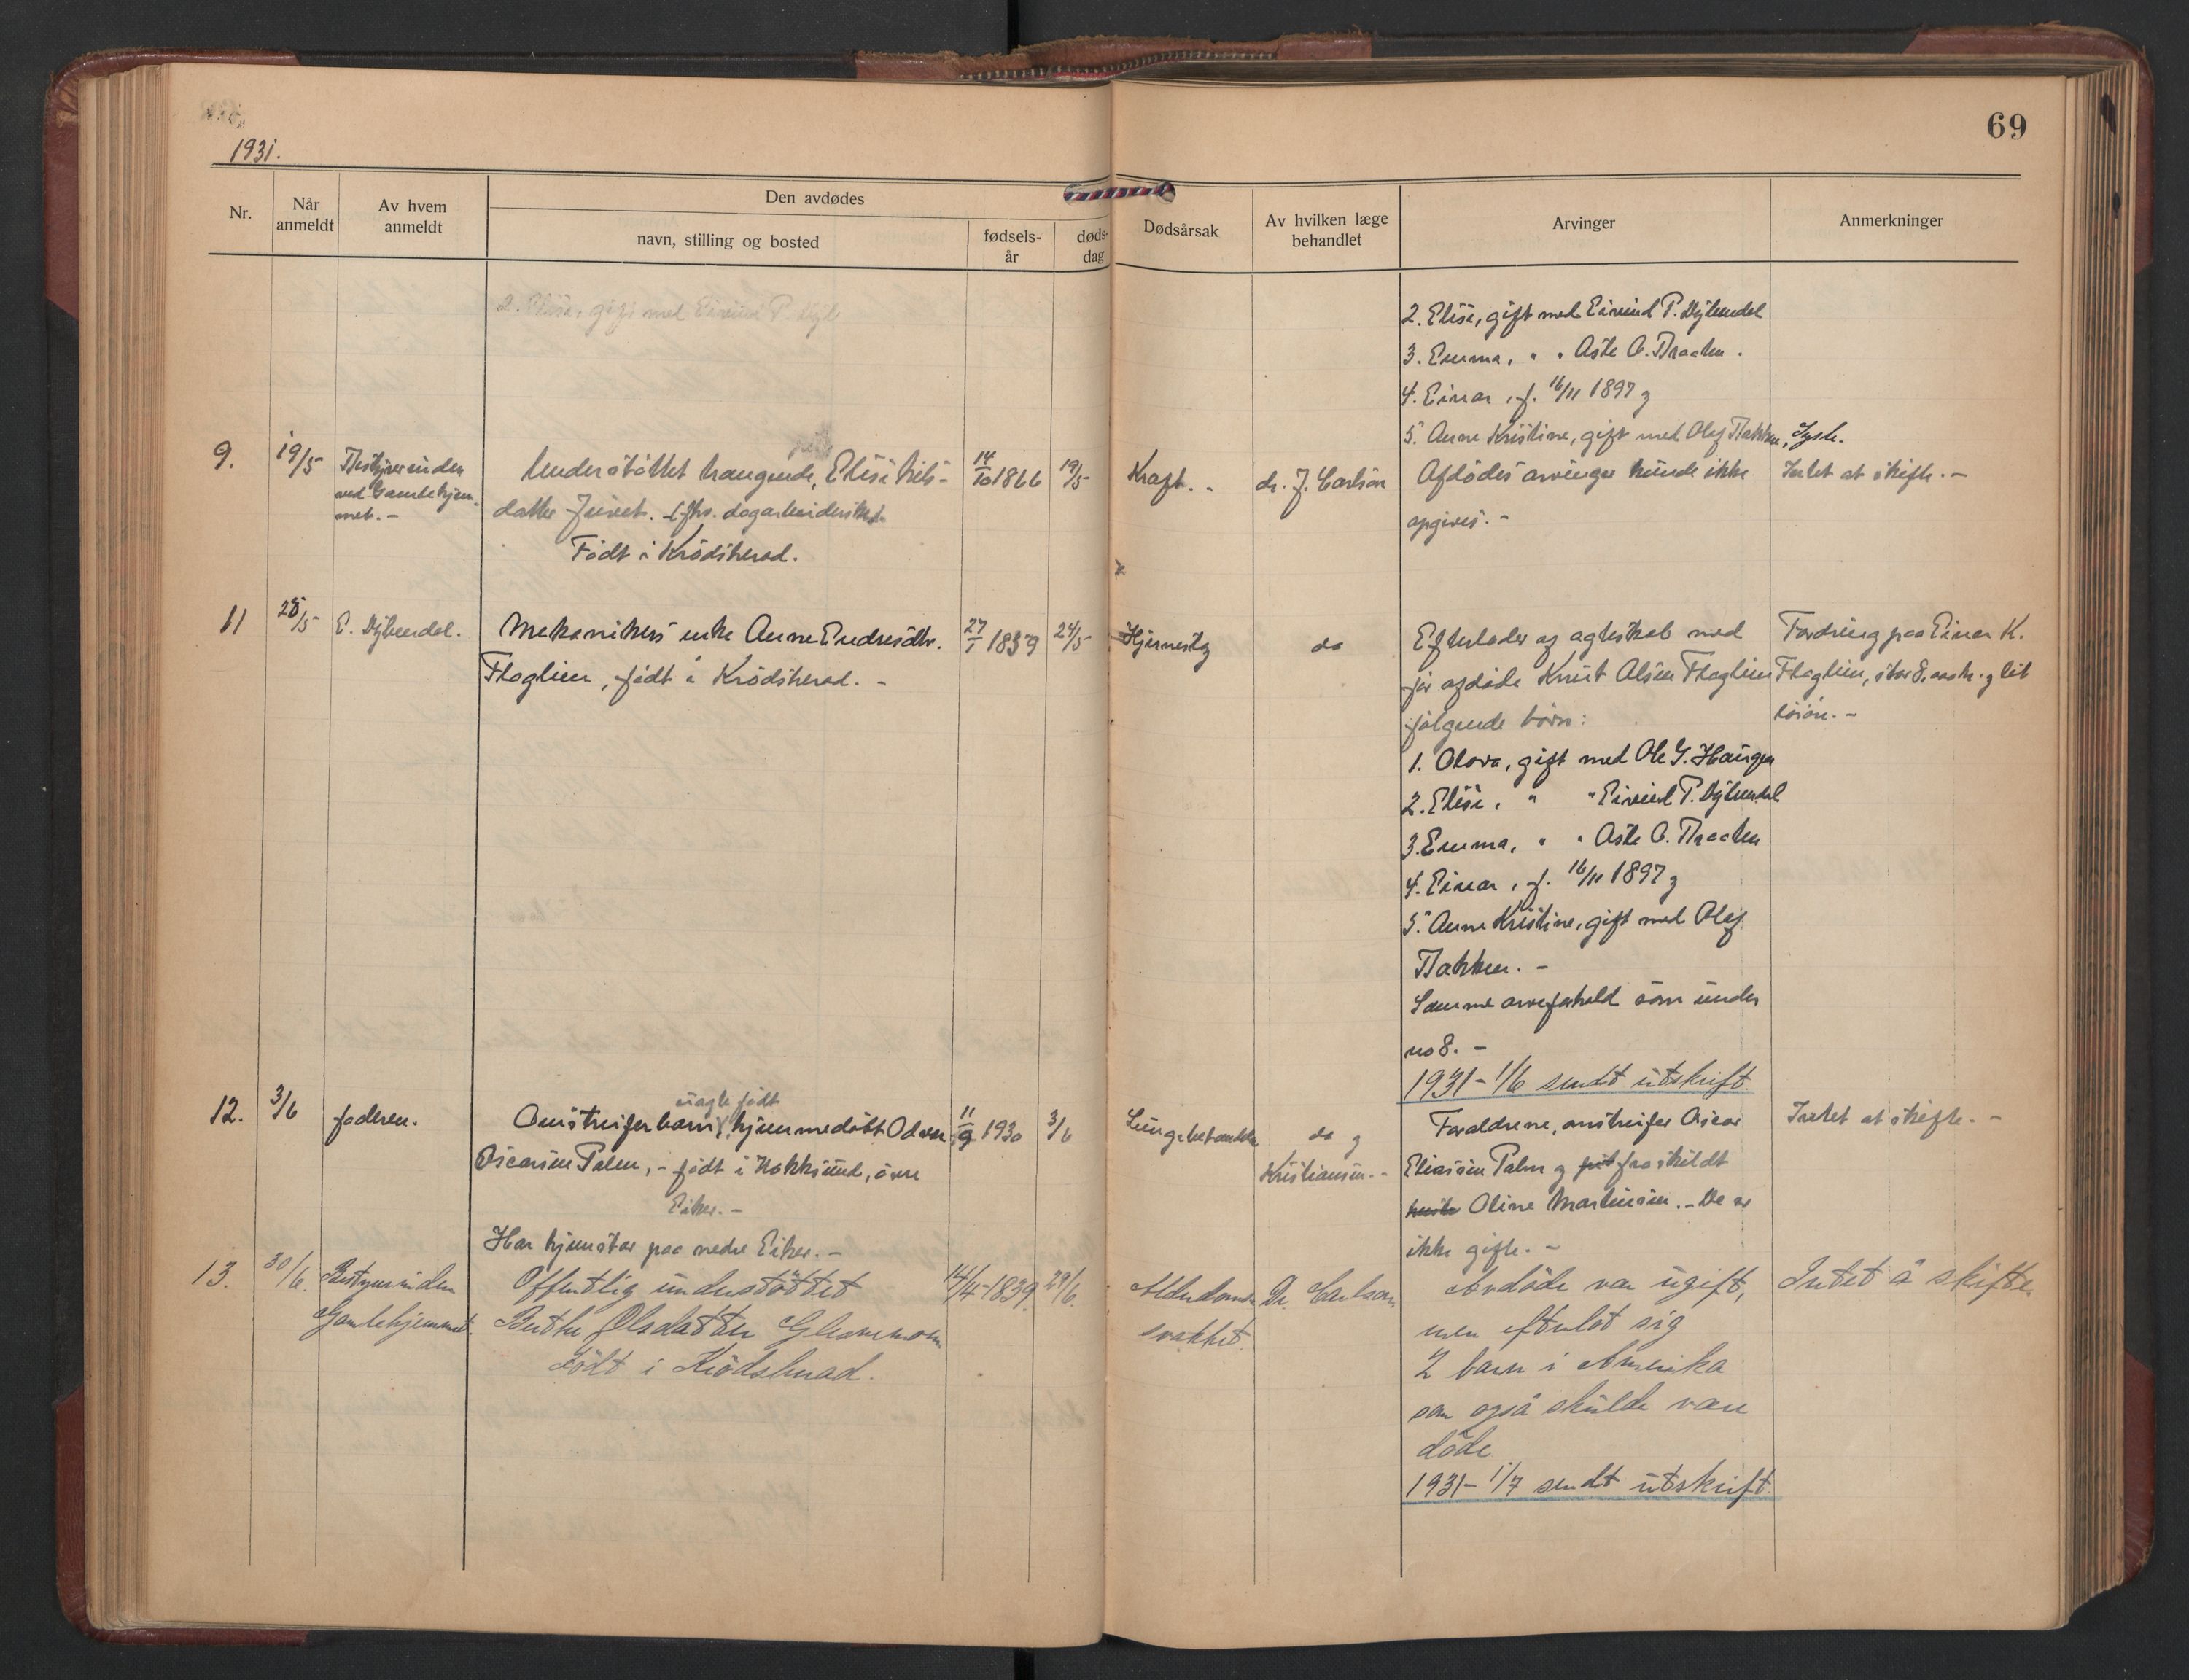 69
1931.
Nr.
Når anmeldt
Av hvem anmeldt
Den avdødes
navn, stilling og bosted
fødsels-år
døds-dag
Dødsårsak
Av hvilken læge behandlet
Arvinger
Anmerkninger
2. Elise, gift med Eivind P.
2. Elise, gift med Eivind P. Dybendal
3. Emma, " " Aste O. Braaten.
4. Einar, f. 16/11 1897 og
5. Anne Kristine, gift med Olaf Bakken,
9.
19/5
Bestyrerinden
ved Gamlehjem-
met. -
Understøttet trængende, Elise Nils-
datter Juvet.
Født i Krødsherad.
14/10 1866
19/5
Kræft. -
dr. J. Carlson
Afdødes arvinger kunde ikke
opgives. -
Intet at skifte. -
11
28/5
E. Dybendal.
Mekanikers enke Anne Endresdtr.
Flaglien, født i Krødsherad. -
27/1 1839
24/5
Hjerneslag
do
Efterlader og ægteskab med
før afdøde Knut Olsen Flaglien
følgende børn:
1. Olava, gift med Ole G. Haugen
2. Elise, " " Eivind P. Dybendal
3. Emma, " " Aste O. Braaten
4. Einar, f. 16/11 1897 og
5. Anne Kristine, gift med Olaf
Bakken. -
Samme arveforhold som under
no 8. -
1931 - 1/6 sendt utskrift.
Fordring paa Einar K.
Flaglien, og lit
løsøre. -
12.
3/6
faderen.
uægte født
Anstreiferbarn, hjemmedøbt Odvar
Oscarsen Palm, - født i Hokksund, øvre
Eiker. -
Har hjemstav paa nedre Eiker. -
11/9 1930
3/6
Lungebetændelse
do og
Kristiansen. -
Forældrene, anstreifer Oscar
Eliassen Palm og fraskildt
Oline Martinsen. - De er
ikke gifte. -
Intet at skifte. -
13.
30/6.
Bestyrerinden
Gamlehjemmet.
Offentlig understøttet
Berthe Olsdatter Glesnemoen
Født i Krødsherad.
14/4-1839.
29/6.
Alderdoms-
svakhet.
Dr. Carlson
Avdøde var ugift,
men efterlot sig
2 barn i Amerika
som også skulde være
døde
1931 - 1/7 sendt utskrift.
Intet å skifte.